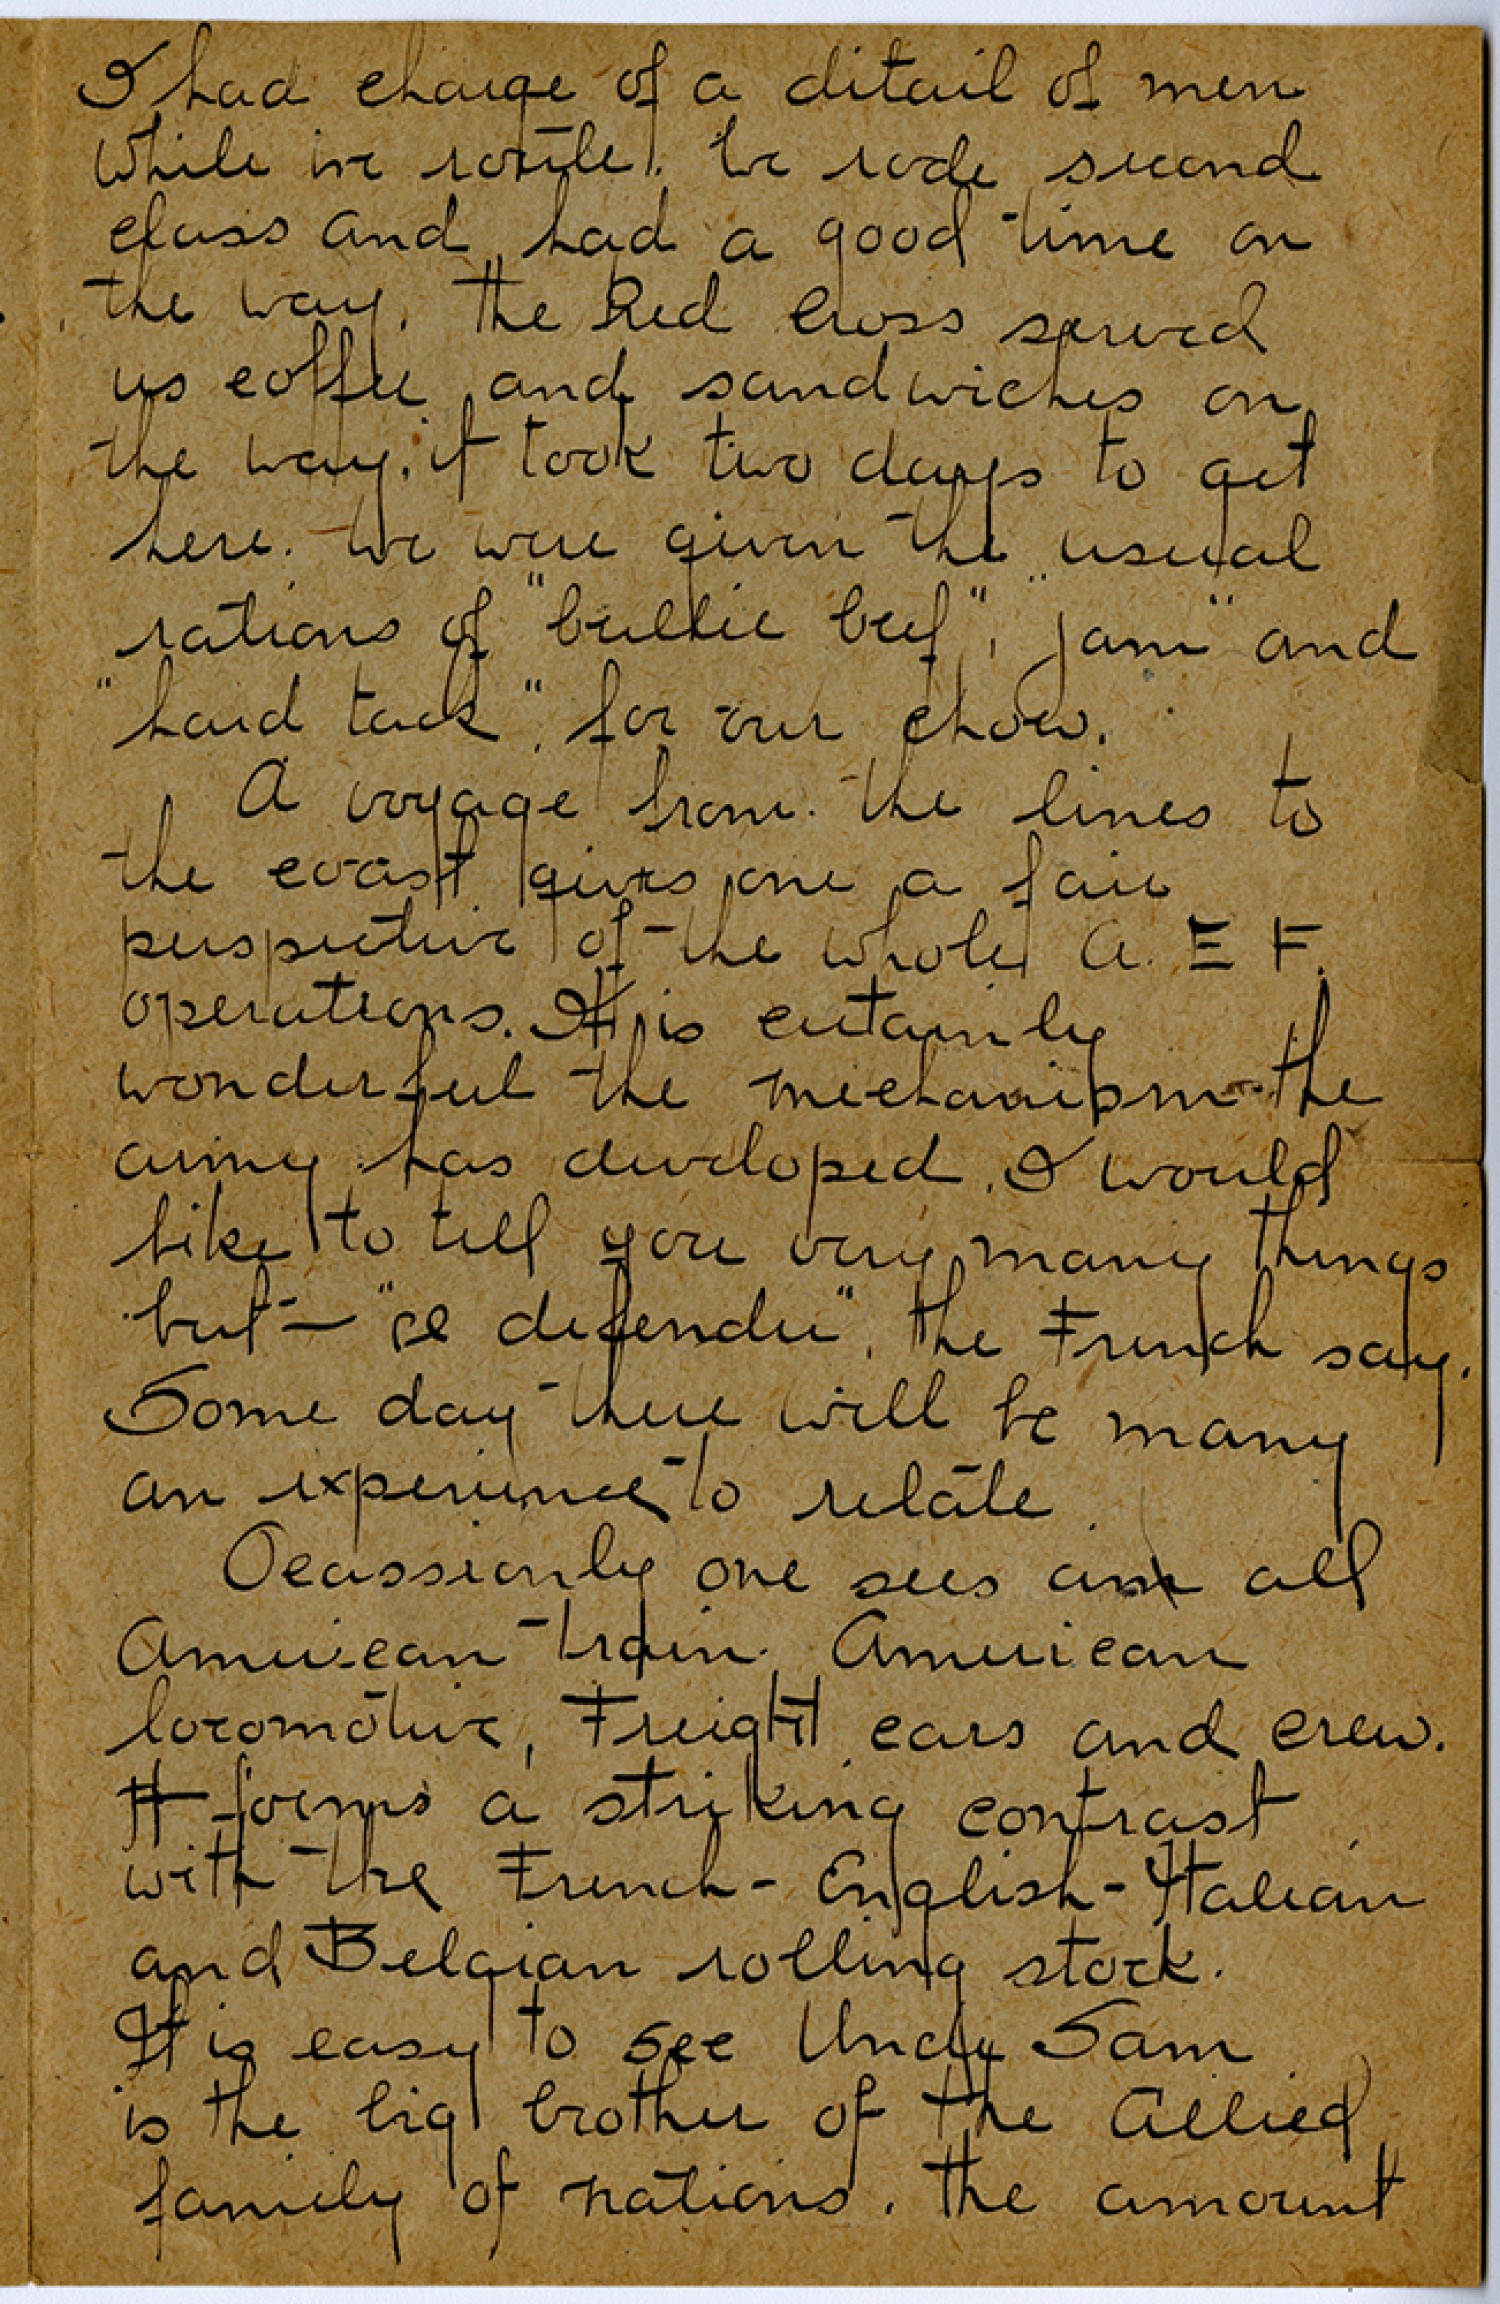 I had charge of a ditail of men
While in route. We rode second
class and had a good time on
the way. The Red Cross served
us coffee and sandwiches on
the way, it took two days to get
here. We were given the usual
rations of "bullie beef", "jam" and
"hard tack", for our chow.
A voyage from the lines to
the coast gives one a fair
perspective of the whole A. E F.
operations. It is certainly
wonderful the mechanism the
army has developed. I would
like to tell you very many things
but - "se defendre", the French say.
Some day there will be many
an experience to relate.
Ocassionly one sees an all
American train. American
locomotive, Freight cars and crew.
It forms a striking contrast
with the French - English - Italian
and Belgian rolling stock.
It is easy to see Uncle Sam
is the big brother of the Allied
family of nations. The amount